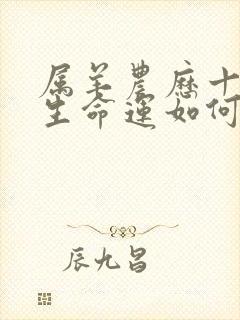 属羊农历十
生命运如何
辰九昌